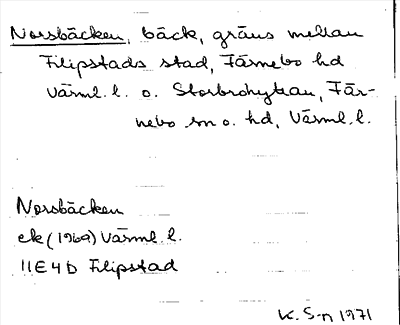 Norsbäcken, bäck, gräns mellan
Filipstads stad, Färnebo hd
Värml. l. o. Storbrohyttan, Fär-
nebo sn o. hd, Värml. l.
Norsbäcken
ek (1969) Värml. l.
11E4D Filipstad
K. S-n 1971